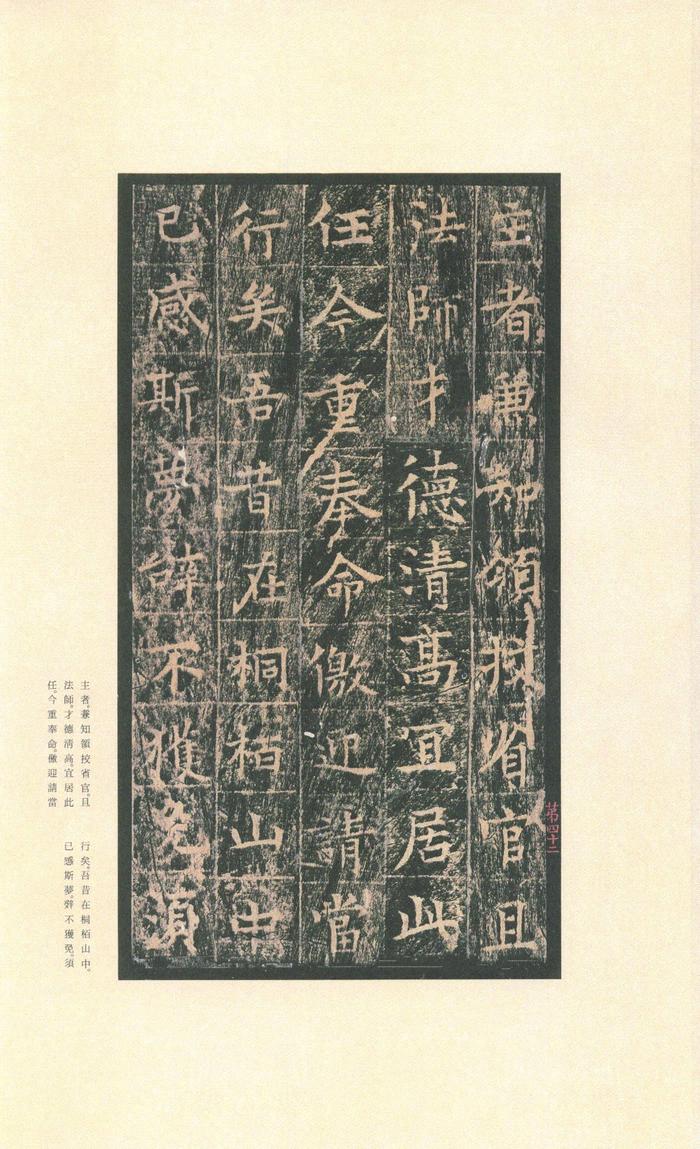 主者兼知領校省官且
法師才德清高冝居此
任今重奉命儌迎請當
行矣吾昔在桐栢山中
已感斯夢辞不獲免須
第四十二
主者。兼知領按省官。且
法師。才德淸高。宜居此
任。今重奉命。儌迎請當
行矣。吾昔在桐栢山中。
已感斯夢。辤不獲免。須